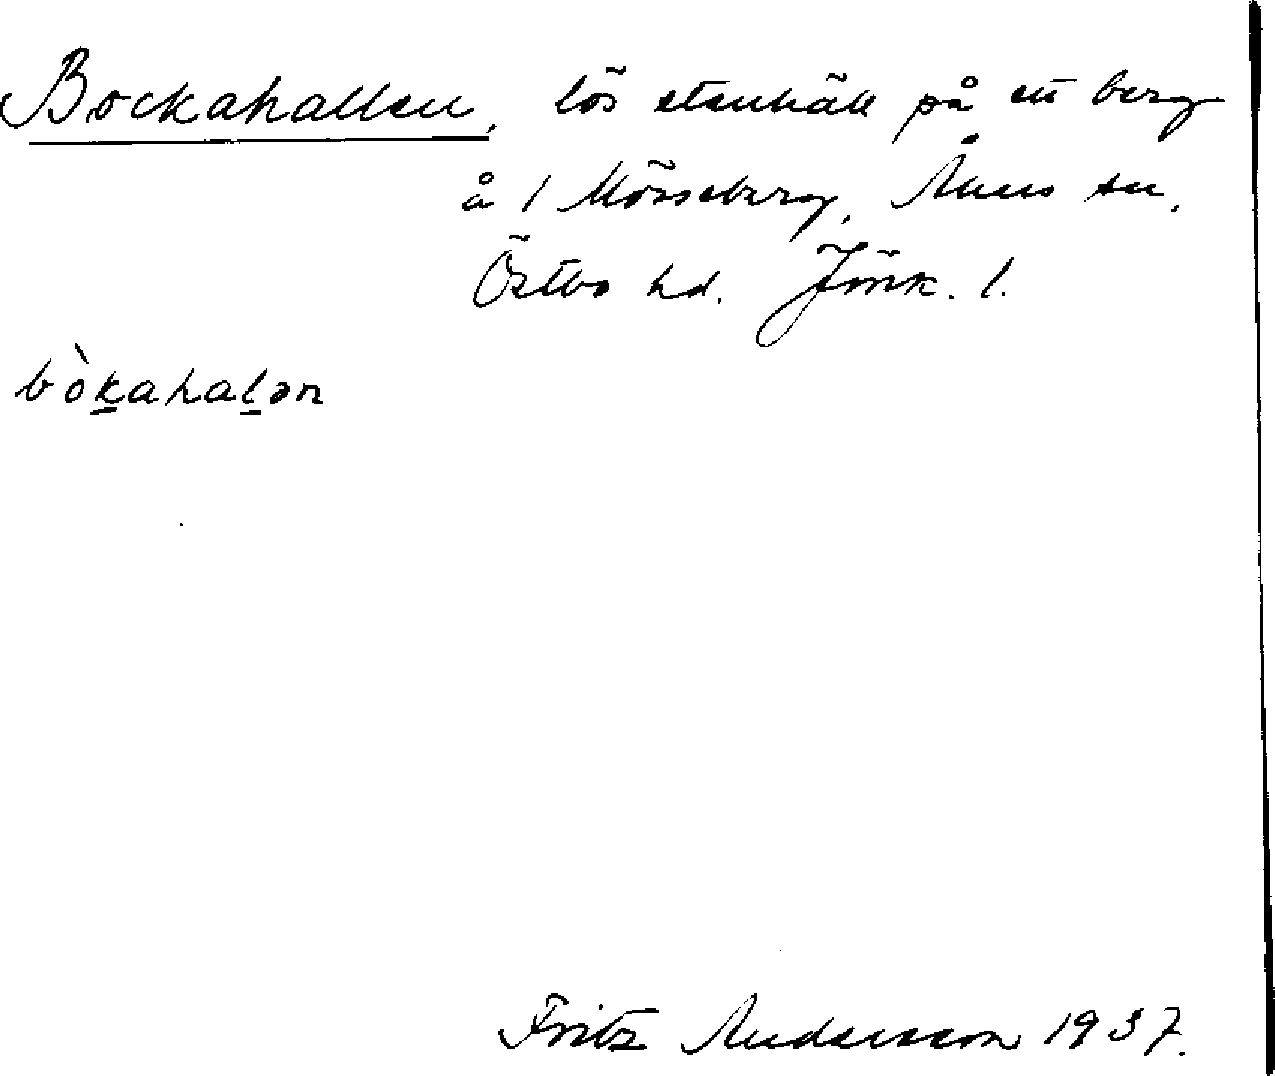 Bockahallen, lös stenhäll på ett berg
å 1 Mörseberg, Åkers sn.
Östbo hd. Jönk. l.
bòkahalən
Fritz Andersson 1937.